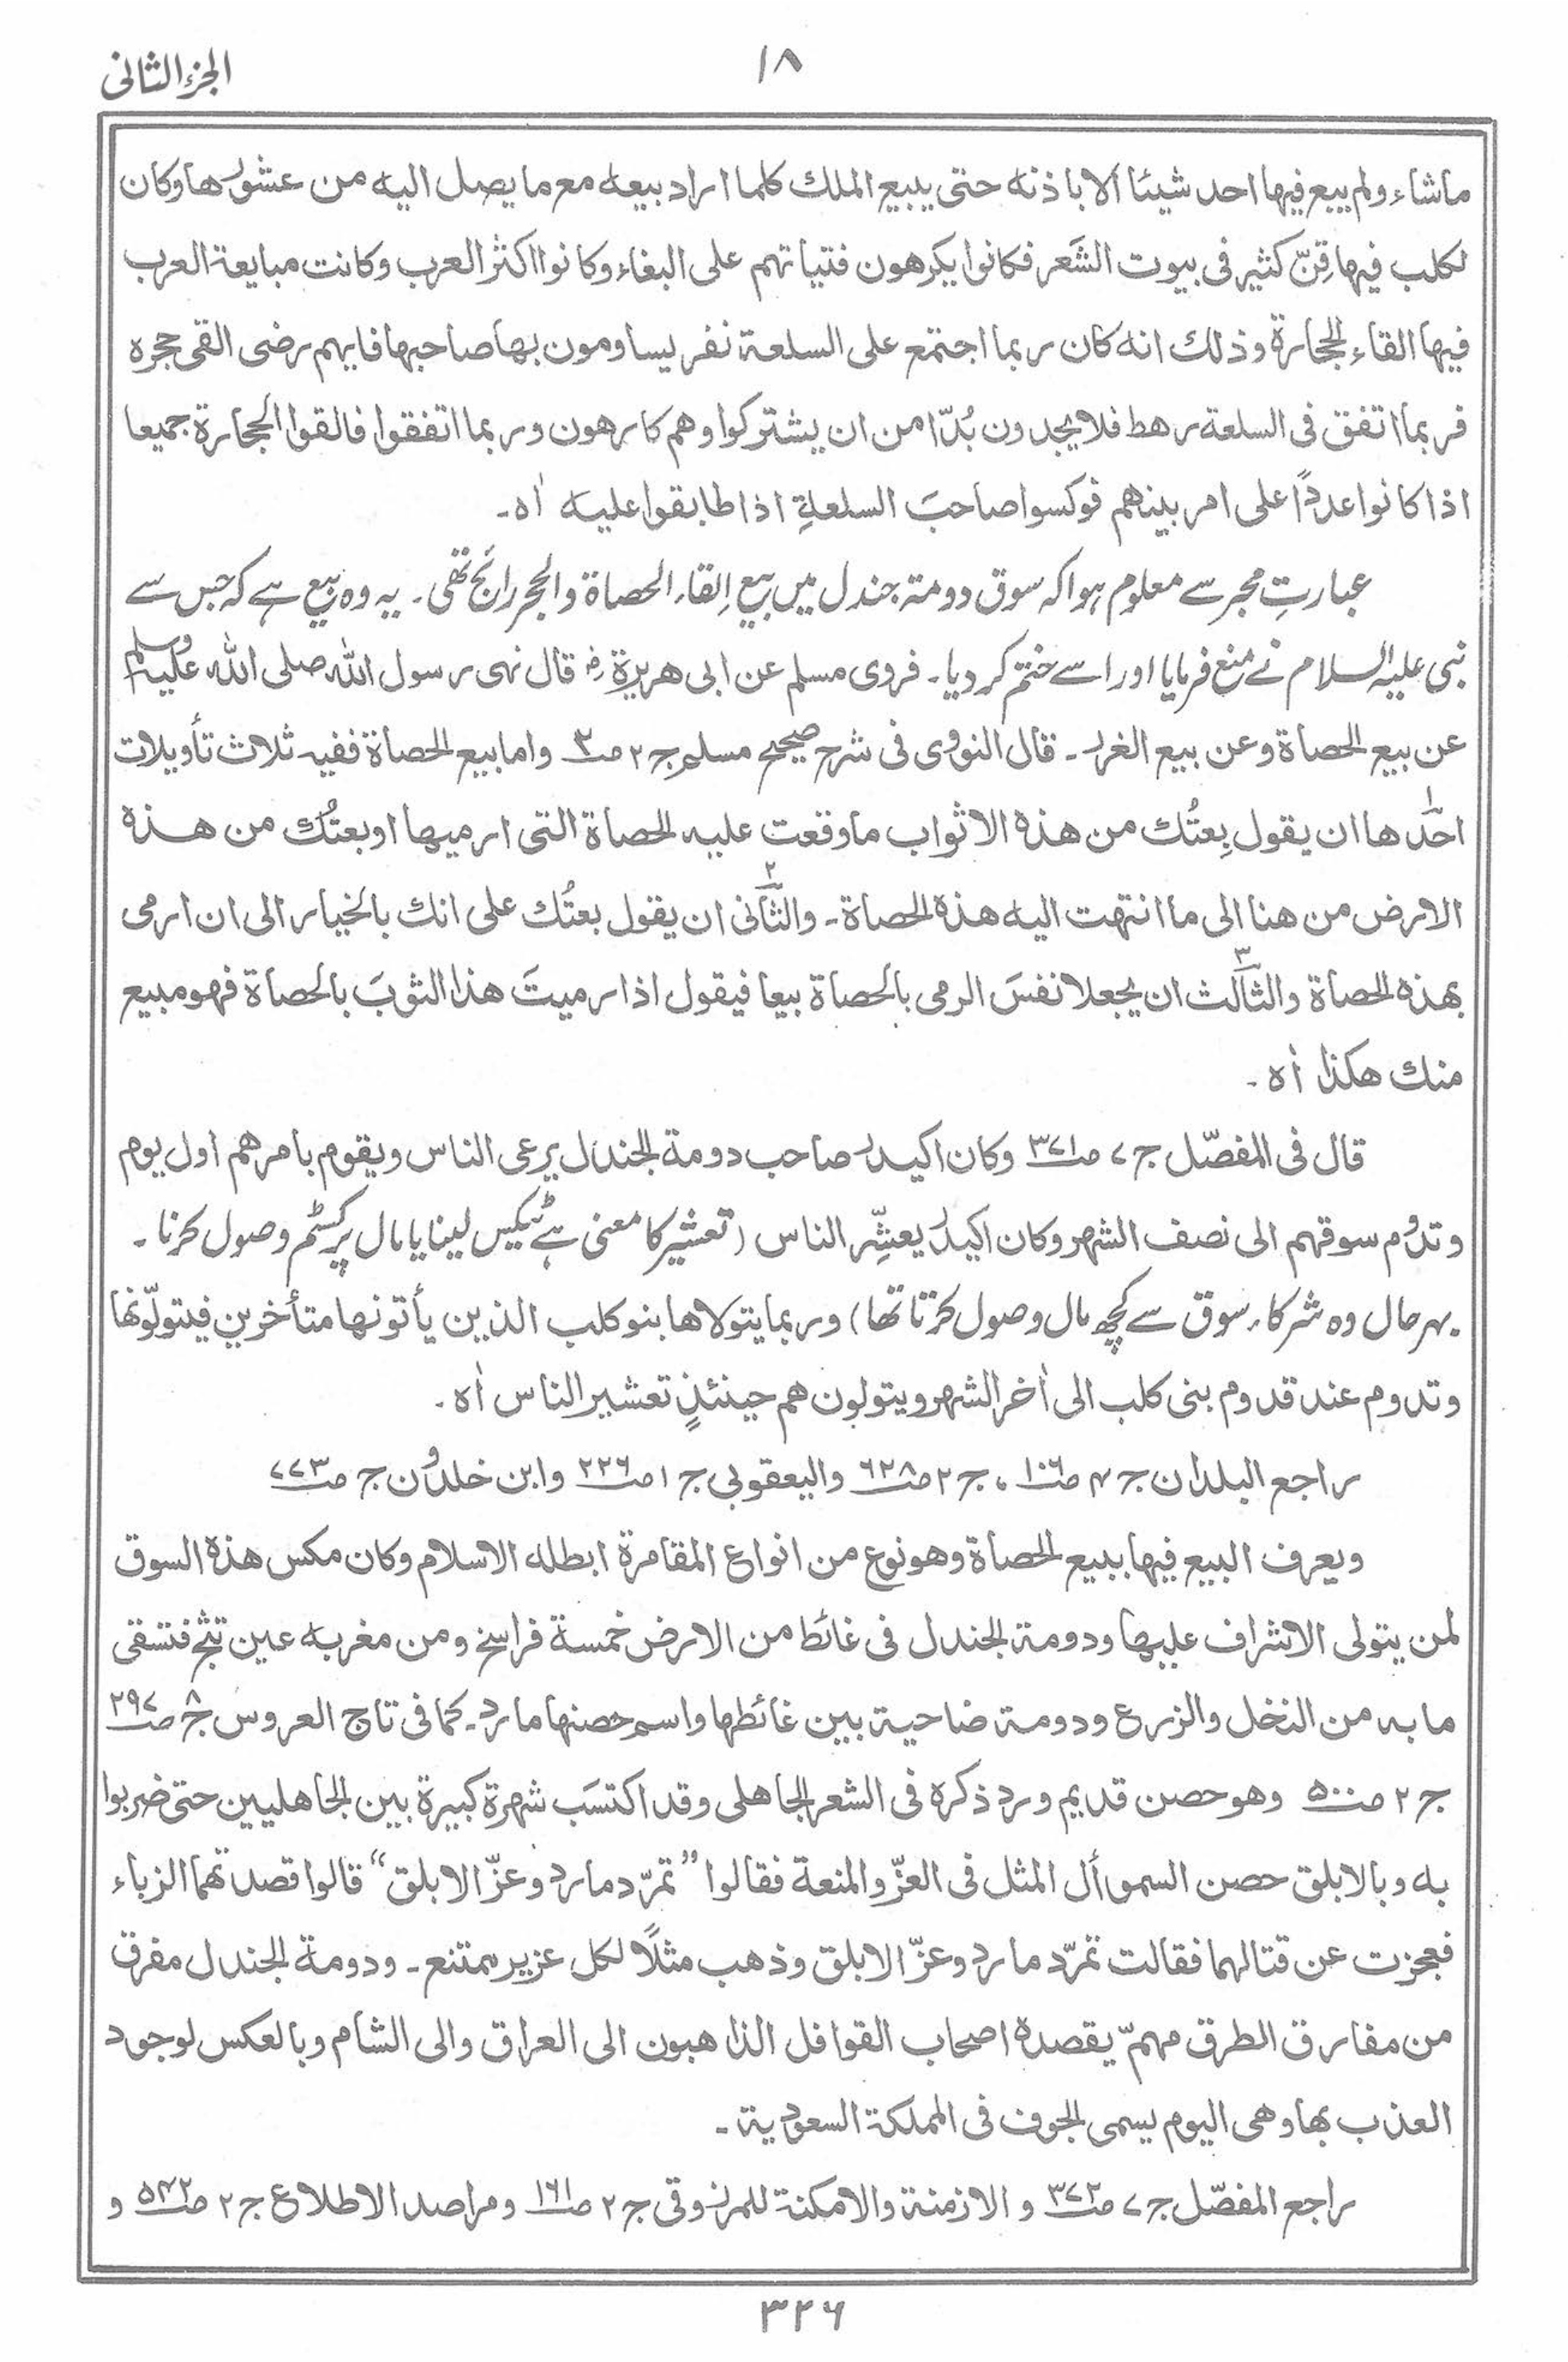 الجزء الثانی
۱۸
ماشاء ولم یبع فیھا احد شیئا الا باذنہ حتی یبیع الملك کلما اراد بیعہ مع ما یصل الیہ من عشورھا وکان
لکلب فیھا قِنّ کثیر فی بیوت الشَعر فکانوا یکرھون فتیاتھم علی البغاء وکانوا اکثر العرب وکانت مبایعۃ العرب
فیھا القاء الحجارۃ وذلك انہ کان ربما اجتمع علی السلعۃ نفر یساومون بھا صاحبھا فایھم رضی القی حجرہ
فربما اتفق فی السلعۃ رھط فلا یجدون بُدّا من ان یشترکوا وھم کارھون وربما اتفقوا فالقوا الحجارۃ جمیعا
اذا کانوا عددًا علی امر بینھم فوکسوا صاحبَ السلعۃِ اذا طابقوا علیہ اٰہ۔
عبارتِ مجر سے معلوم ہوا کہ سوق دومۃ جندل میں بیع اِلقاء الحصاۃ والحجر رائج تھی۔ یہ وہ بیع ہے کہ جس سے
نبی علیہ السلام نے منع فرمایا اور اسے ختم کر دیا۔ فروی مسلم عن ابی ھریرۃ رض قال نہی رسول اللہ صلی اللہ علیہ وسلم
عن بیع الحصاۃ وعن بیع الغرر۔ قال النووی فی شرح صحیح مسلم ج ۲ ص۳ واما بیع الحصاۃ ففیہ ثلاث تأویلات
احدھا ۱ ان یقول بِعتُك من ھذہ الاثواب ما وقعت علیہ الحصاۃ التی ارمیھا او بعتُك من ھذہ
الارض من ھنا الی ما انتھت الیہ ھذہ الحصاۃ۔ والثانی ۲ ان یقول بعتُك علی انك بالخیار الی ان ارمی
بھذہ الحصاۃ والثالث ۳ ان یجعلا نفسَ الرمی بالحصاۃ بیعا فیقول اذا رمیتَ ھذا الثوبَ بالحصاۃ فھو مبیع
منك ھکذا اٰہ۔
قال فی المفصّل ج ۷ ص۳۷۱ وکان اکیدر صاحب دومۃ الجندل یرعی الناس ویقوم بامرھم اول یوم
وتدوم سوقھم الی نصف الشھر وکان اکیدر یعشِّر الناس (تعشیر کا معنی ہے ٹیکس لینا یا مال پر کسٹم وصول کرنا۔
بہر حال وہ شرکاء سوق سے کچھ مال وصول کرتا تھا) وربما یتولاھا بنو کلب الذین یأتونھا متأخرین فیتولّونھا
وتدوم عند قدوم بنی کلب الی اٰخر الشھر ویتولون ھم حینئذٍ تعشیر الناس اٰہ۔
راجع البلدان ج ۴ ص۱۰۶ ، ج ۲ ص۶۲۸ والیعقوبی ج ۱ ص۲۲۶ وابن خلدون ج ص۷۷۳
ویعرف البیع فیھا ببیع الحصاۃ وھو نوع من انواع المقامرۃ ابطلہ الاسلام وکان مکس ھذہ السوق
لمن یتولی الاشراف علیھا ودومۃ الجندل فی غائط من الارض خمسۃ فراسخ ومن مغربہ عین تثج فتسقی
ما بہ من النخل والزرع ودومۃ ضاحیۃ بین غائطھا واسم حصنھا مارد۔ کما فی تاج العروس ج۸ ص۲۹۷
ج ۲ ص۵۰۰ وھو حصن قدیم ورد ذکرہ فی الشعر الجاھلی وقد اکتسَب شھرۃ کبیرۃ بین الجاھلیین حتی ضربوا
بہ وبالابلق حصن السموأل المثل فی العزّ والمنعۃ فقالوا ”تمرّد مارد وعزّ الابلق“ قالوا قصدتھما الزباء
فعجزت عن قتالھما فقالت تمرّد مارد وعزّ الابلق وذھب مثلًا لکل عزیز ممتنع۔ ودومۃ الجندل مفرق
من مفارق الطرق مھمّ یقصدہ اصحاب القوافل الذاھبون الی العراق والی الشام وبالعکس لوجود
العذب بھا وھی الیوم یسمی الجوف فی المملکۃ السعودیۃ۔
راجع المفصّل ج ۷ ص۳۷۲ و الازمنۃ والامکنۃ للمرزوقی ج ۲ ص۱۶۱ ومراصد الاطلاع ج ۲ ص۵۴۲ و
۳۲۶